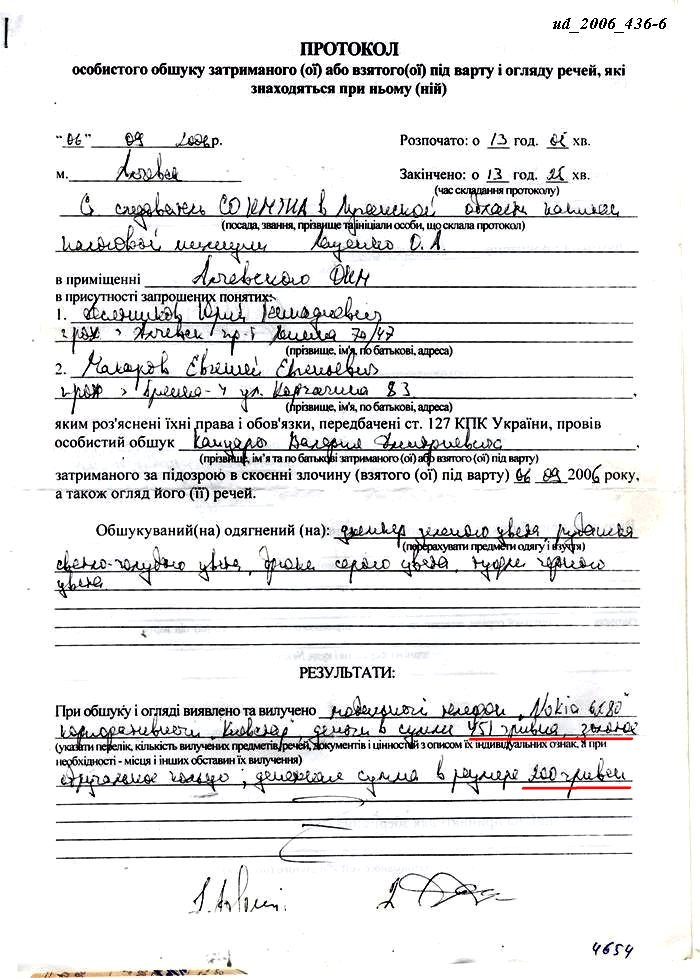 ud_2006_436-6
ПРОТОКОЛ
особистого обшуку затриманого (ої) або взятого(ої) під варту і огляду речей, які
знаходяться при ньому (ній)
“06” 09 2006 р. Розпочато: о 13 год. 05 хв.
м. Алчевск Закінчено: о 13 год. 25 хв.
(час складання протоколу)
Ст следователь СО в Луганской области
(посада, звання, прізвище та ініціали особи, що склала протокол)
налоговой милиции О. А.
в приміщенні Алчевского
в присутності запрошених понятих:
1. Юрий Геннадиевич
Алчевск 70/47
(прізвище, ім'я, по батькові, адреса)
2. Макаров Евгений Евгеньевич
ул. Корчагина 83
(прізвище, ім'я, по батькові, адреса)
яким роз'яснені їхні права і обов'язки, передбачені ст. 127 КПК України, провів
особистий обшук Валерия Дмитриевича
(прізвище, ім'я та по батькові затриманого (ої) або взятого (ої) під варту)
затриманого за підозрою в скоєнні злочину (взятого (ої) під варту) 06 09 2006 року,
а також огляд його (її) речей.
Обшукуваний(на) одягнений (на): джемпер цвета, рубашка
(перерахувати предмети одягу і взуття)
светло-голубого цвета, брюки серого цвета, туфли черного
цвета
РЕЗУЛЬТАТИ:
При обшуку і огляді виявлено та вилучено телефон „Nokia 6280”
деньги в сумме 451 гривна, золотое
(указати перелік, кількість вилучених предметів, речей, документів і цінностей з описом їх індивідуальних ознак, а при
необхідності - місця і інших обставин їх вилучення)
обручальное кольцо, денежная сумма в размере 200 гривен
4654